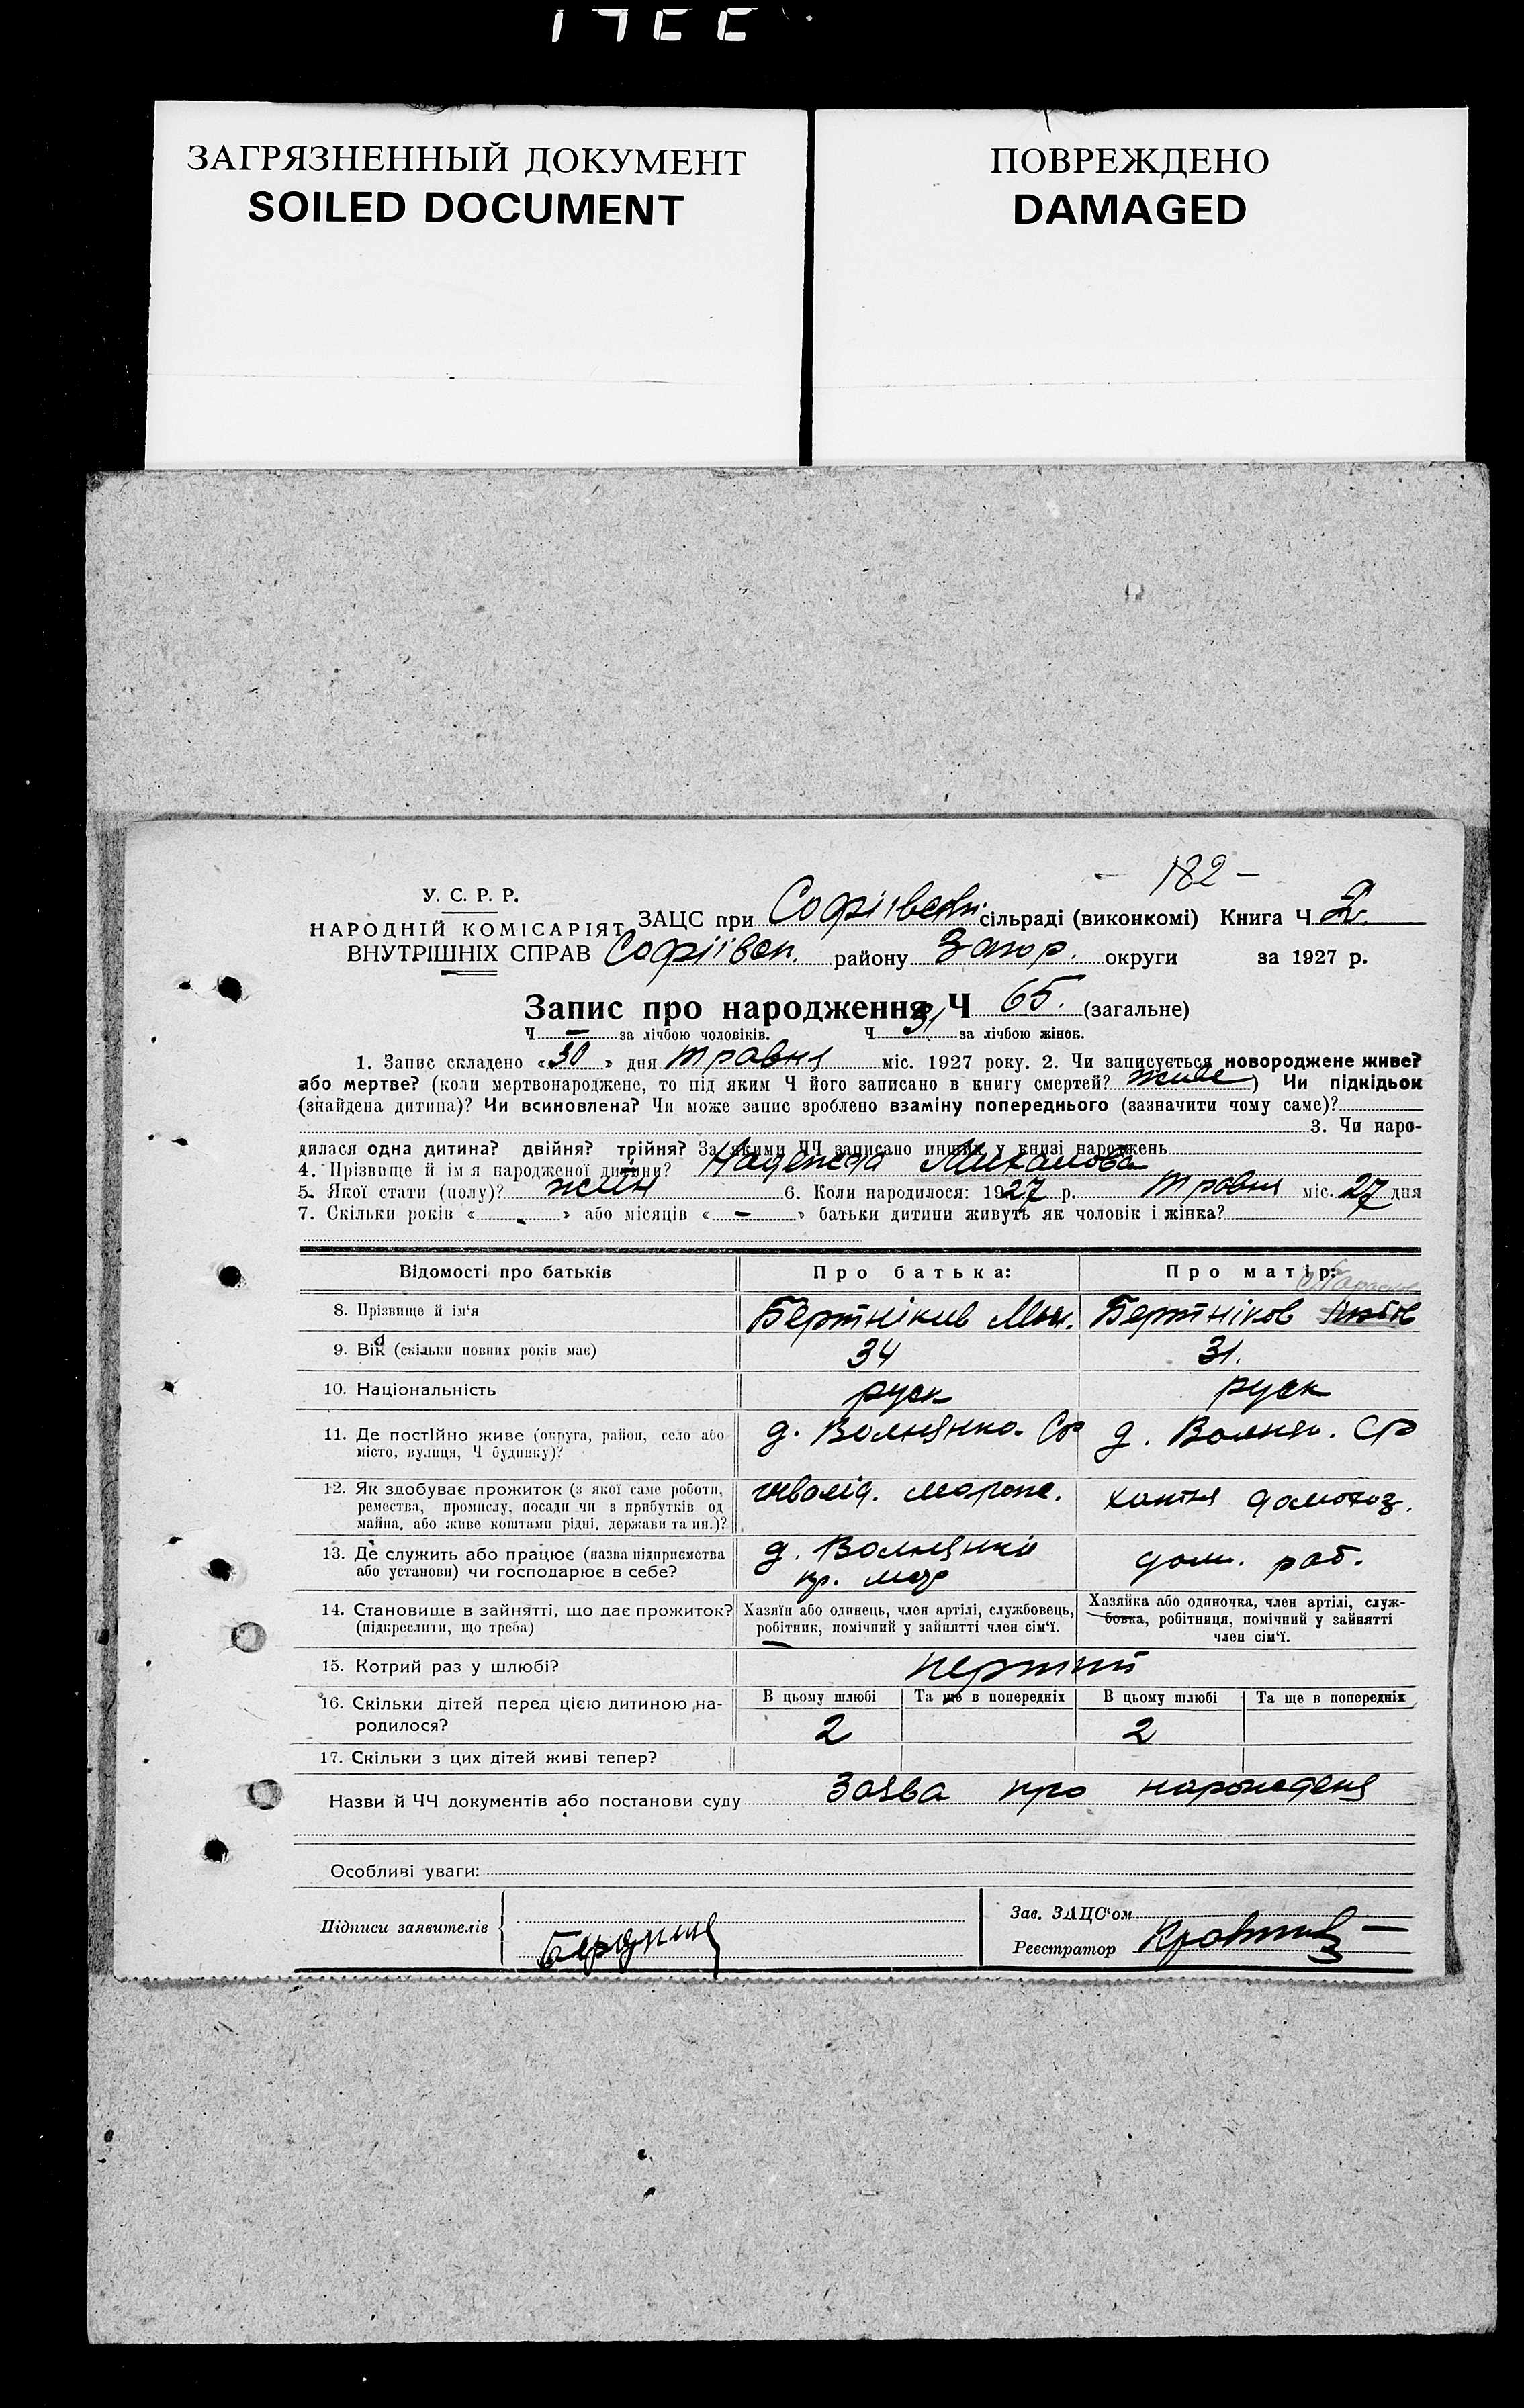 ЗАГРЯЗНЕННЫЙ ДОКУМЕНТ
SOILED DOCUMENT
ПОВРЕЖДЕНО
DAMAGED
- 182 -
У. С. Р. Р.
НАРОДНІЙ КОМІСАРІЯТ
ВНУТРІШНІХ СПРАВ
ЗАЦС при Софіївськ. сільраді (виконкомі) Книга Ч. 2.
Софіївсп. району Запор. округи за 1927 р.
Запис про народження Ч 65. (загальне)
Ч — за лічбою чоловіків. Ч 31 за лічбою жінок.
1. Запис складено «30» дня травня міс. 1927 року. 2. Чи записується новороджене живе?
або мертве? (коли мертвонароджене, то під яким Ч його записано в книгу смертей? живе) Чи підкідьок
(знайдена дитина)? Чи всиновлена? Чи може запис зроблено взаміну попереднього (зазначити чому саме)?
3. Чи наро-
дилася одна дитина? двійня? трійня? За якими ЧЧ записано инших у книзі народжень
4. Прізвище й ім я народженої дитини? Надежда Михалова
5. Якої стати (полу)? жін 6. Коли народилося: 1927 р. травня міс. 27 дня
7. Скільки років « - » або місяців « - » батьки дитини живуть як чоловік і жінка?
Відомості про батьків
Про батька:
Про матір:
8. Прізвище й ім‘я
Бертніков Мих.
Бертніков
9. Вік (скільки повних років має)
34
31.
10. Національність
руск
руск
11. Де постійно живе (округа, район, село або
місто, вулиця, Ч будинку)?
д. Волнянка. Ср
д. Волнян. Ср
12. Як здобуває прожиток (з якої саме роботи,
ремества, промислу, посади чи з прибутків од
майна, або живе коштами рідні, держави та ин.)?
інвалід.
домохоз.
13. Де служить або працює (назва підприємства
або установи) чи господарює в себе?
д. Волнянка
дом. раб.
14. Становище в зайнятті, що дає прожиток?
(підкреслити, що треба)
Хазяїн або одинець, член артілі, службовець,
робітник, помічний у зайнятті член сім‘ї.
Хазяйка або одиночка, член артілі, служ-
бовка, робітниця, помічний у зайнятті
член сім‘ї.
15. Котрий раз у шлюбі?
перший
16. Скільки дітей перед цією дитиною на-
родилося?
В цьому шлюбі
Та ще в попередніх
В цьому шлюбі
Та ще в попередніх
2
2
17. Скільки з цих дітей живі тепер?
Назви й ЧЧ документів або постанови суду Заява про народженя
Особливі уваги:
Підписи заявителів
Зав. ЗАЦС‘ом
Реєстратор